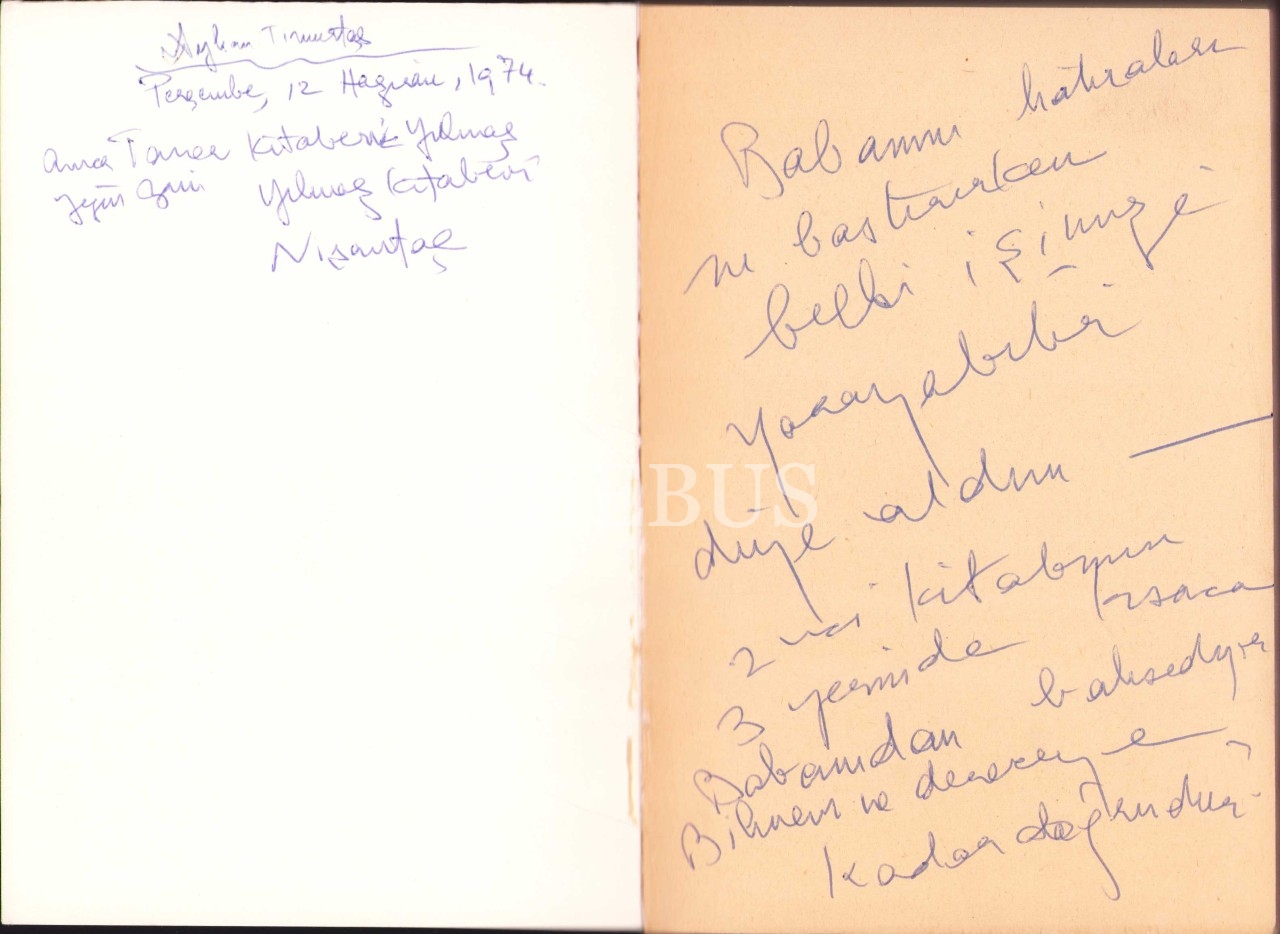 Ayhan Timurtaş
Perşembe, 12 Haziran, 1974.
Kitabevi Yılmaz
Yılmaz Kitabevi
Nişantaş
Babamın hatıraları
nı bastırırken
belki işimize
yarayabilir
diye aldım —
2 nci kitabının
3 yerinde kısaca
Babamdan bahsediyor
Bilmem ne dereceye
kadar doğrudur
EBUS